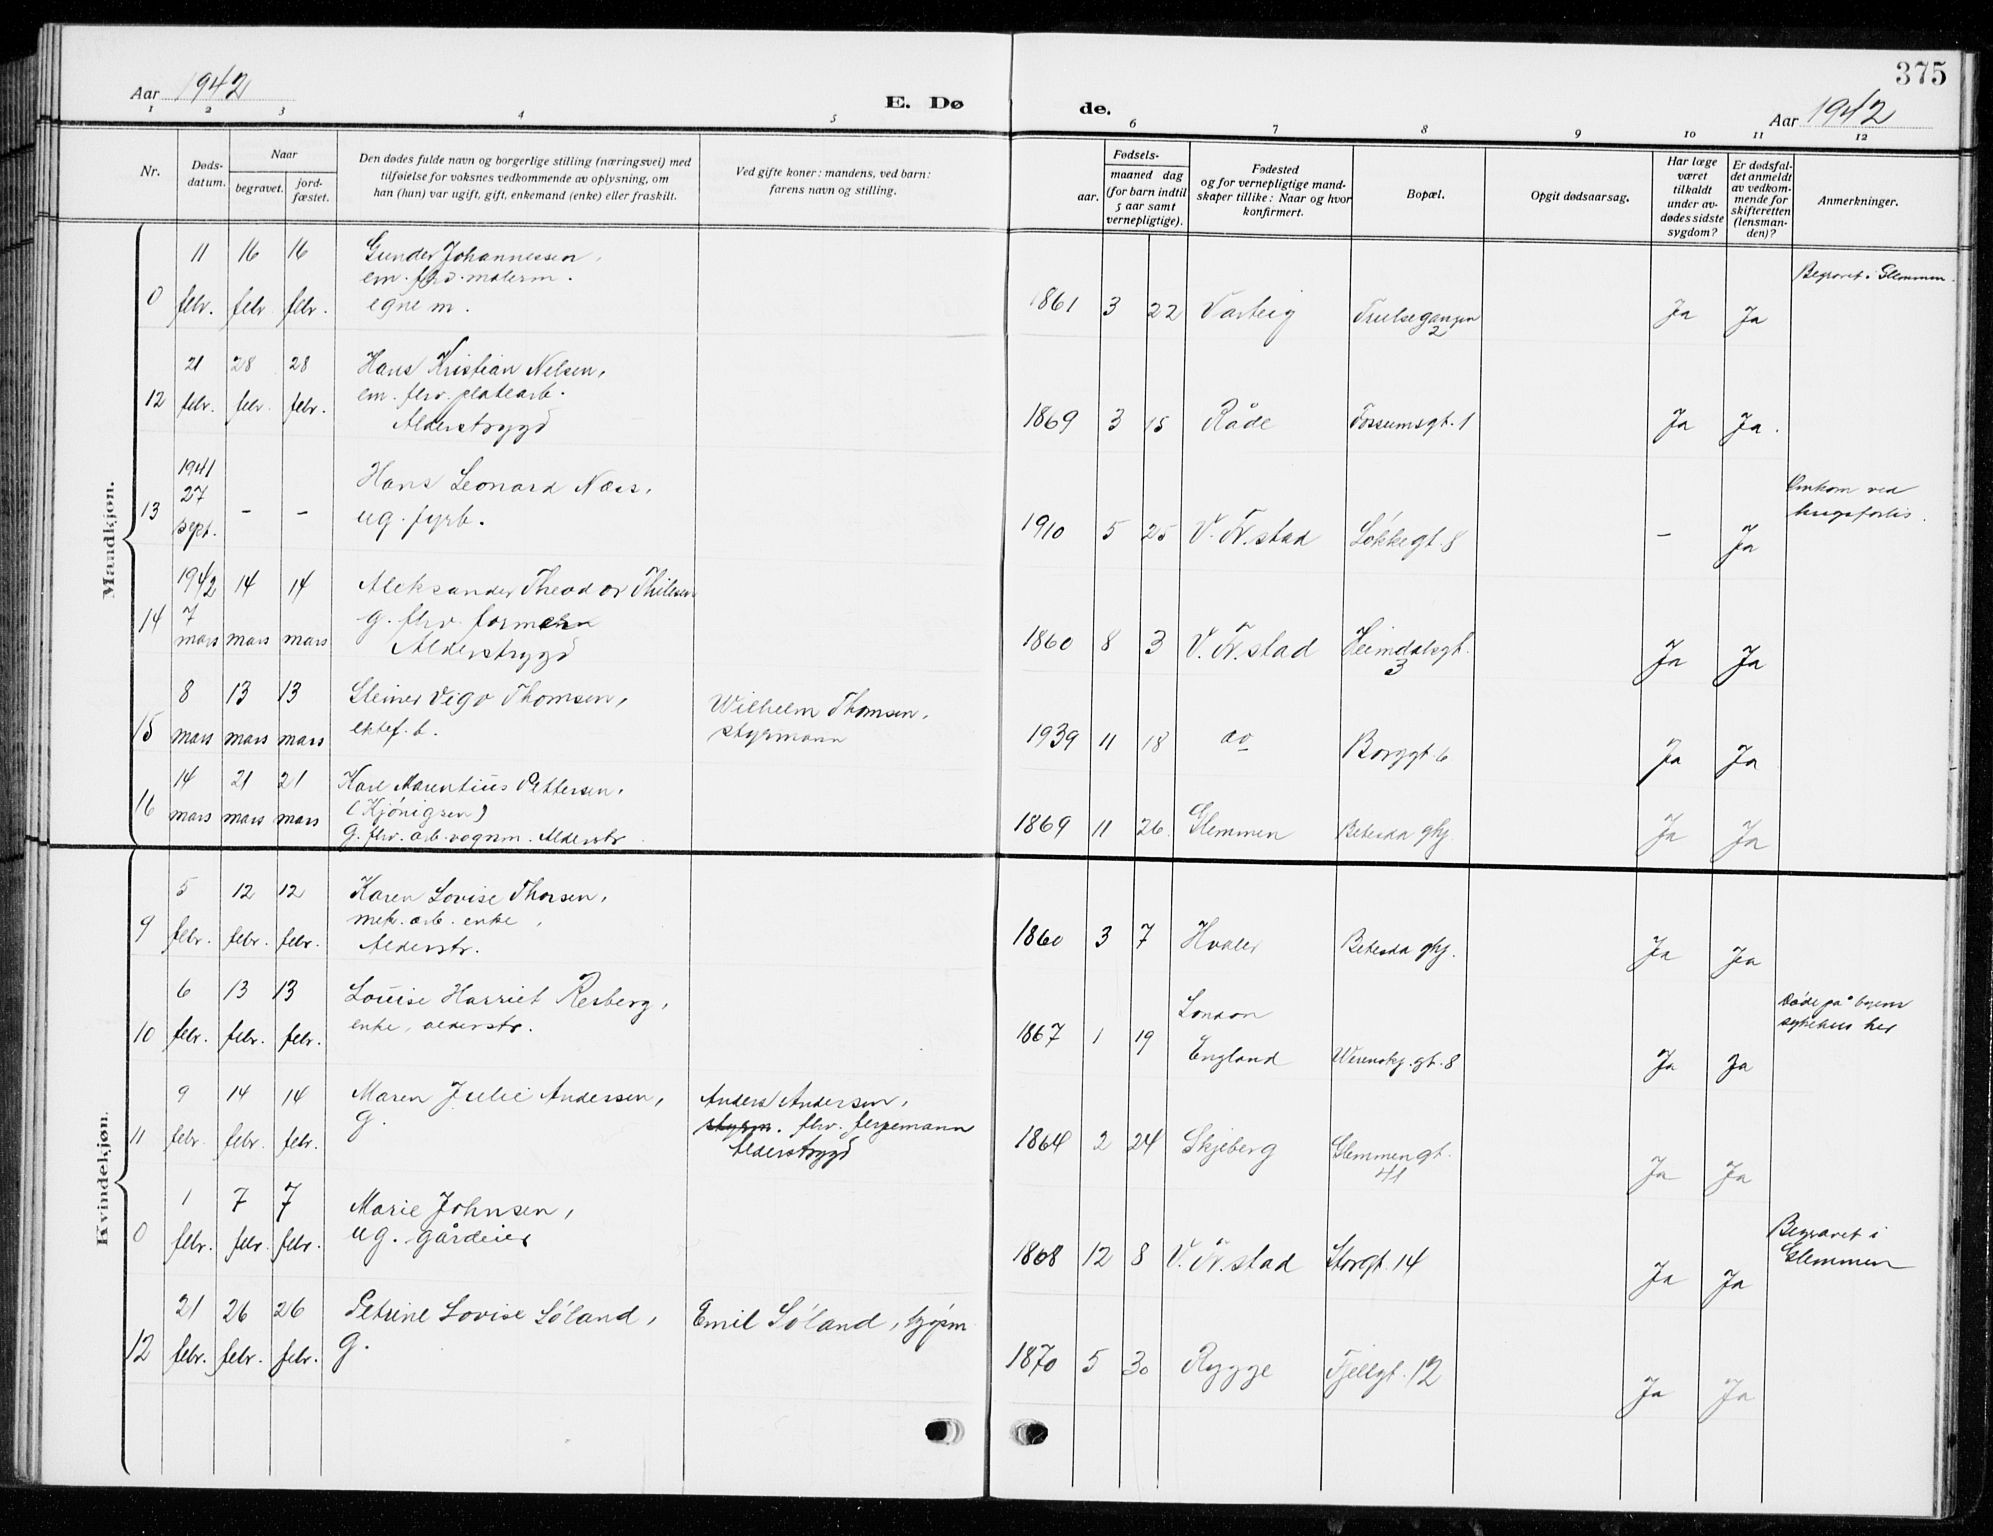 375
Aar 1942
E. Dø
de.
Aar 1942
1 2 3 4 5 6 7 8 9 10 11 12
Nr.
Døds-
datum.
Naar
begravet.
jord-
fæstet.
Den dødes fulde navn og borgerlige stilling (næringsvei) med
tilføielse for voksnes vedkommende av oplysning, om
han (hun) var ugift, gift, enkemand (enke) eller fraskilt.
Ved gifte koner: mandens, ved barn:
farens navn og stilling.
Fødsels-
aar.
maaned dag
(for barn indtil
5 aar samt
vernepligtige).
Fødested
og for vernepligtige mand-
skaper tillike: Naar og hvor
konfirmert.
Bopæl.
Opgit dødsaarsag.
Har læge
været
tilkaldt
under av-
dødes sidste
sygdom?
Er dødsfal-
det anmeldt
av vedkom-
mende for
skifteretten
(lensman-
den)?
Anmerkninger.
Mandkjøn.
0 11 febr. 16 febr 16 febr. Gunder Johannessen,
em. fhv. malerm.
egne m.
1861 3 22 Varteig Trulsegangen 2 Ja Ja Begravet i Glemmen.
12 21 febr. 28 febr. 28 febr. Hans Kristian Nelsen,
em. fhv. platearb.
Alderstrygd
1869 3 15 Råde Fossumsgt. 1 Ja Ja.
13 1941 27 sept. - - Hans Leonard Næss,
ug. fyrb.
1910 5 25 V. Fr.stad Løkkegt. 8 - Ja Omkom ved
krigsforlis.
14 1942 7 mars 14 mars 14 mars Aleksander Theodor Thilesen
g. fhv. formann
Alderstrygd
1860 8 3 V. Fr.stad Heimdalsgt. 3 Ja Ja
15 8 mars 13 mars 13 mars Steiner Vigo Thomsen,
ektef. b.
Wilhelm Thomsen,
styrmann
1939 11 18 do Borggt 6 Ja Ja
16 14 mars 21 mars 21 mars Karl Marentius Pettersen,
(Kjønigsen)
G. fhv. arb. vognm. Alderstr.
1869 11 26. Glemmen Betesda ghj. Ja Ja
Kvindekjøn.
9 5 febr. 12 febr. 12 febr. Karen Lovise Thorsen,
mek. arb. enke,
Alderstr.
1860 3 7 Hvaler Betesda ghj. Ja Ja
10 6 febr. 13 febr. 13 febr. Louise Harriet Resberg,
enke, alderstr.
1867 1 19 London
England Werenskj. gt. 8 Ja Ja Døde på byens
sykehus her
11 9 febr. 14 febr. 14 febr. Maren Julie Andersen,
G.
Anders Andersen,
styrm. fhv. fergemann
Alderstrygd
1864 2 24 Skjeberg Glemmengt. 41 Ja Ja
0 1 febr. 7 febr. 7 febr. Marie Johnsen,
ug. gårdeier
1868 12 8 V. Fr.stad Storgt. 14 Ja Ja Begravet i
Glemmen
12 21 febr. 26 febr. 26 febr. Petrine Lovise Søland,
G.
Emil Søland,
1870 5 30 Rygge Fjellgt. 12 Ja Ja